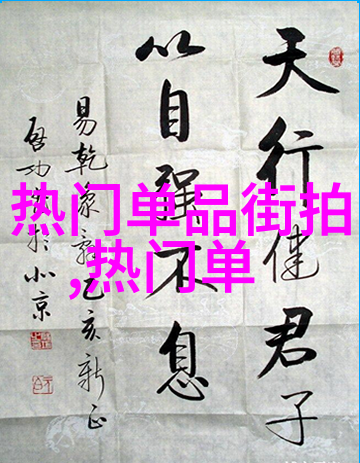 天行健君子
以自强不息
易乾象辞乙亥新正
启功书于北京
热门单品街拍
,热门单